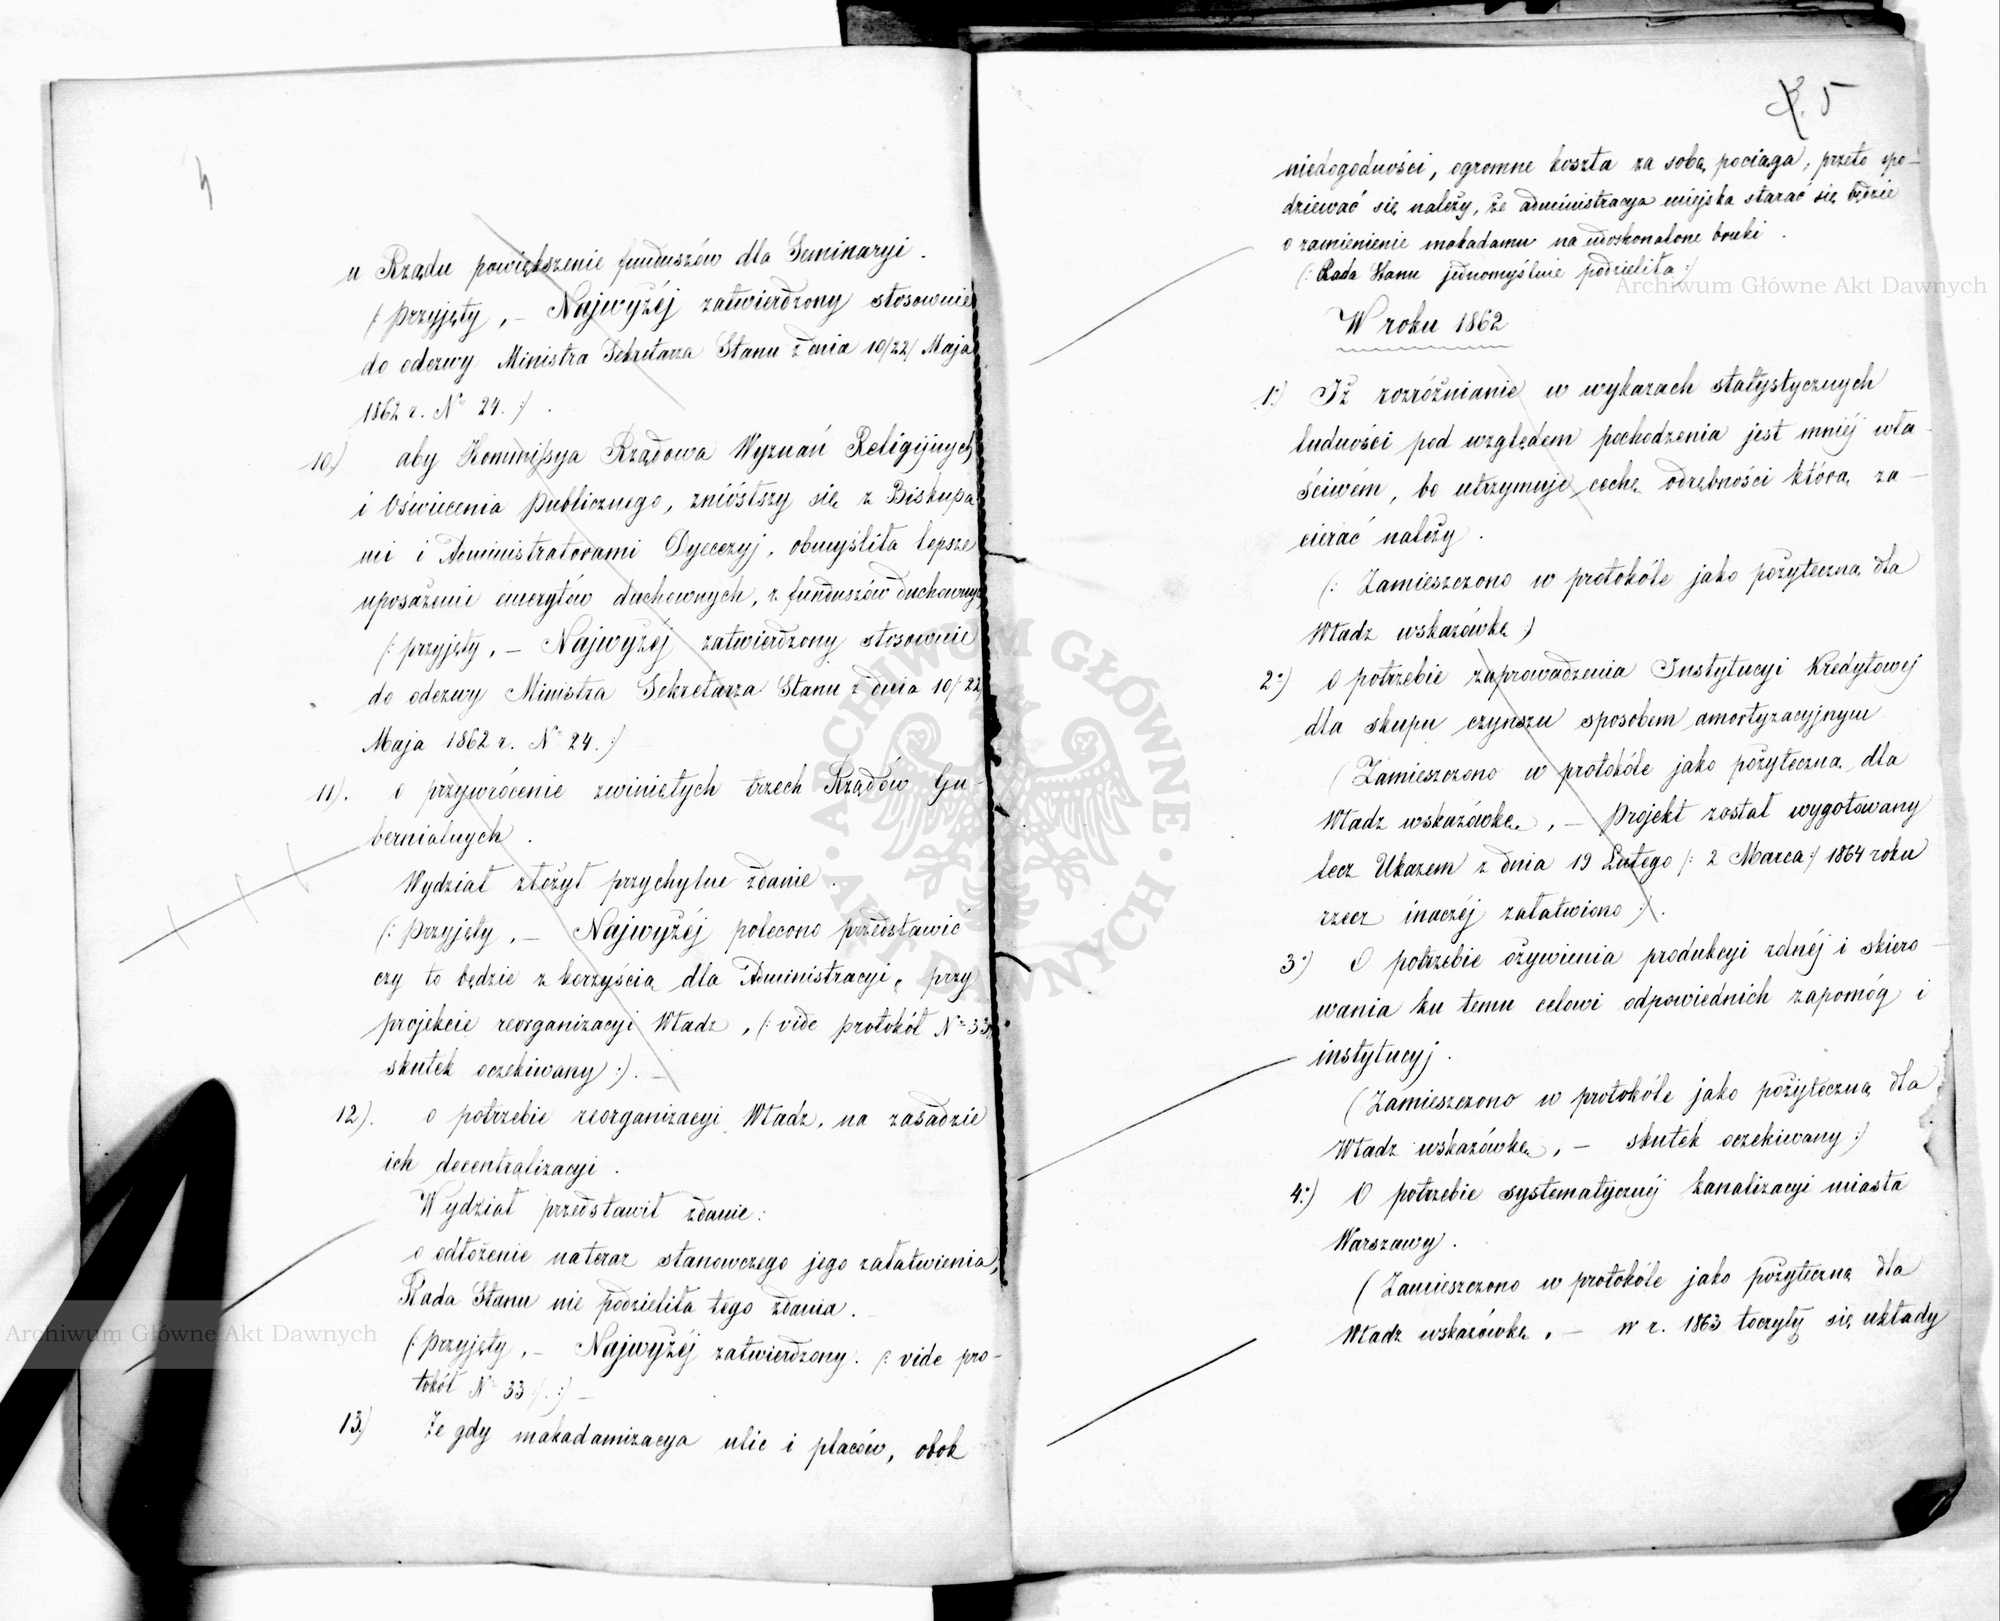 4
u Rządu powiększenie funduszów dla Seminaryi.
(: przyjęty, – Najwyżéj zatwierdzony stosownie
do odezwy Ministra Sekretarza Stanu z dnia 10/22 Maja
1862 r. No 24. :)
10.) aby Kommissya Rządowa Wyznań Religijnych
i Oświecenia Publicznego, zniósłszy się z Biskupa
mi i Administratorami Dyecezyj, obmyśliła lepsze
uposażenie emerytów duchownych, z funduszów duchownych
(: przyjęty, – Najwyżéj zatwierdzony stosownie
do odezwy Ministra Sekretarza Stanu z dnia 10/22
Maja 1862 r. No 24. :)
11). o przywrócenie zwiniętych trzech Rządów Gu-
bernialnych.
Wydział złożył przychylne zdanie.
(: Przyjęty, – Najwyżéj polecono przedstawić
czy to będzie z korzyścią dla Administracyi, przy
projekcie reorganizacyi Władz, (: vide protokół No 33.
skutek oczekiwany :). –
12). o potrzebie reorganizacyi Władz, na zasadzie
ich decentralizacyi.
Wydział przedstawił zdanie:
o odłożenie na teraz stanowczego jego załatwienia,
Rada Stanu nie podzieliła tego zdania. –
(: Przyjęty, – Najwyżéj zatwierdzony. (: vide pro-
tokół No 33 :). :) –
13.) Że gdy makadamizacya ulic i placów, obok
5
niedogodności, ogromne koszta za sobą pociąga, przeto spo-
dziewać się należy, że administracya miejska starać się będzie
o zamienienie makadamu na udoskonalone bruki.
(: Rada Stanu jednomyślnie podzieliła :)
W roku 1862
1.) Iż rozróżnianie w wykazach statystycznych
ludności pod względem pochodzenia jest mniéj wła-
ściwém, bo utrzymuje cechę odrębności którą za-
cierać należy.
(: Zamieszczono w protokóle jako pożyteczną dla
Władz wskazówkę :)
2.) O potrzebie zaprowadzenia Instytucyi Kredytowej
dla skupu czynszu sposobem amortyzacyjnym
(Zamieszczono w protokóle jako pożyteczną dla
Władz wskazówkę, – Projekt został wygotowany
lecz Ukazem z dnia 19 Lutego (: 2 Marca :) 1864 roku
rzecz inaczéj załatwiono :).
3.) O potrzebie ożywienia produkcyi rolnéj i skiero-
wania ku temu celowi odpowiednich zapomóg i
instytucyj.
(Zamieszczono w protokóle jako pożyteczną dla
Władz wskazówkę, – skutek oczekiwany :)
4.) O potrzebie systematycznéj kanalizacyi miasta
Warszawy.
(Zamieszczono w protokóle jako pożyteczną dla
Władz wskazówkę, – w r. 1863 toczyły się układy
Archiwum Główne Akt Dawnych
Archiwum Główne Akt Dawnych
ARCHIWUM GŁÓWNE · AKT DAWNYCH ·